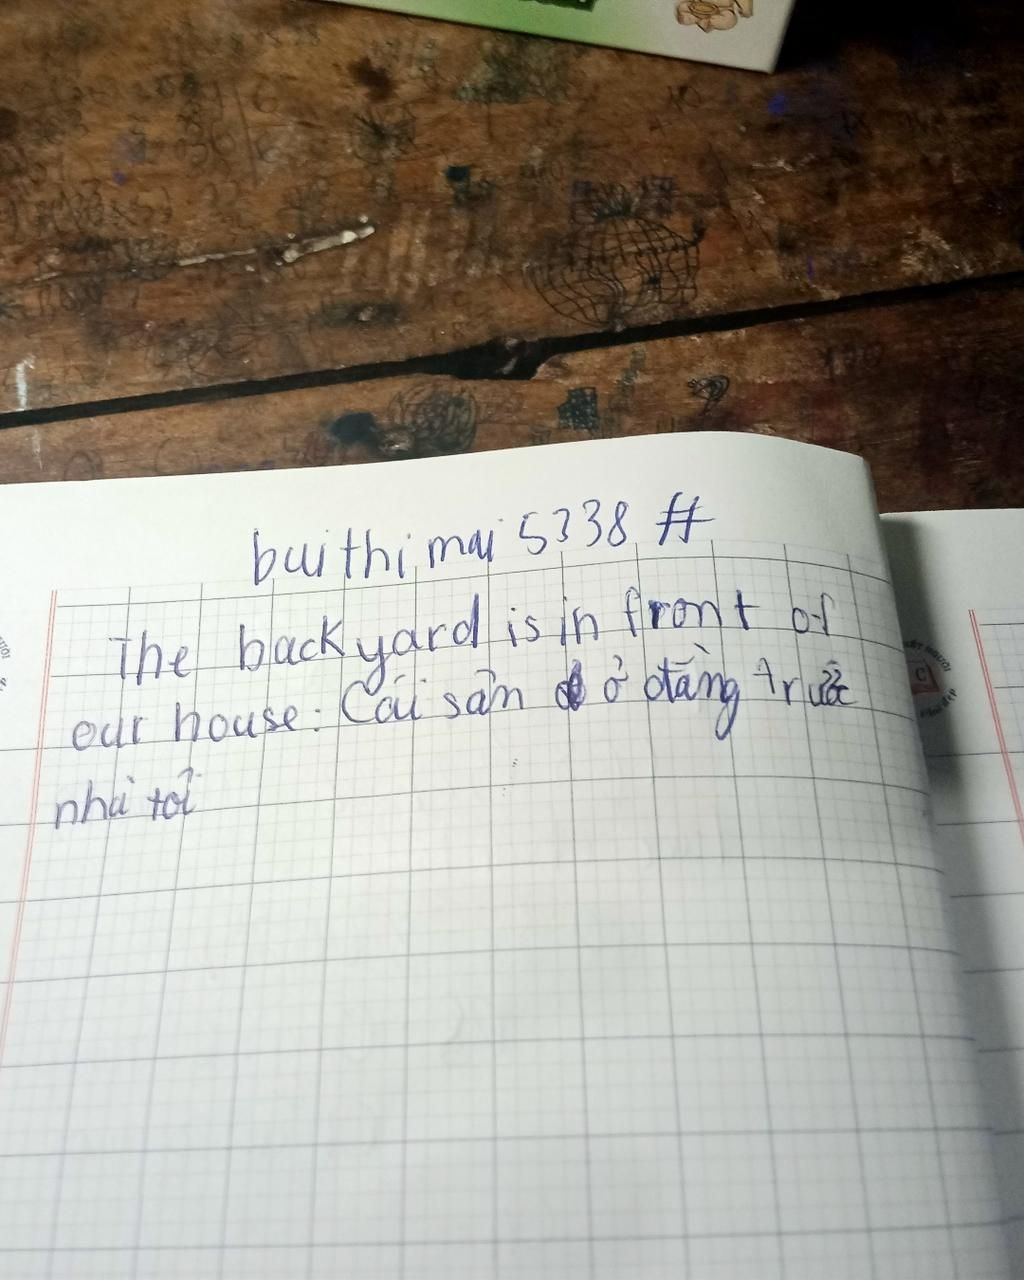 buithi mai 5338 #
The backyard is in front of
our house: Cái sân ở đằng trước
nhà tôi